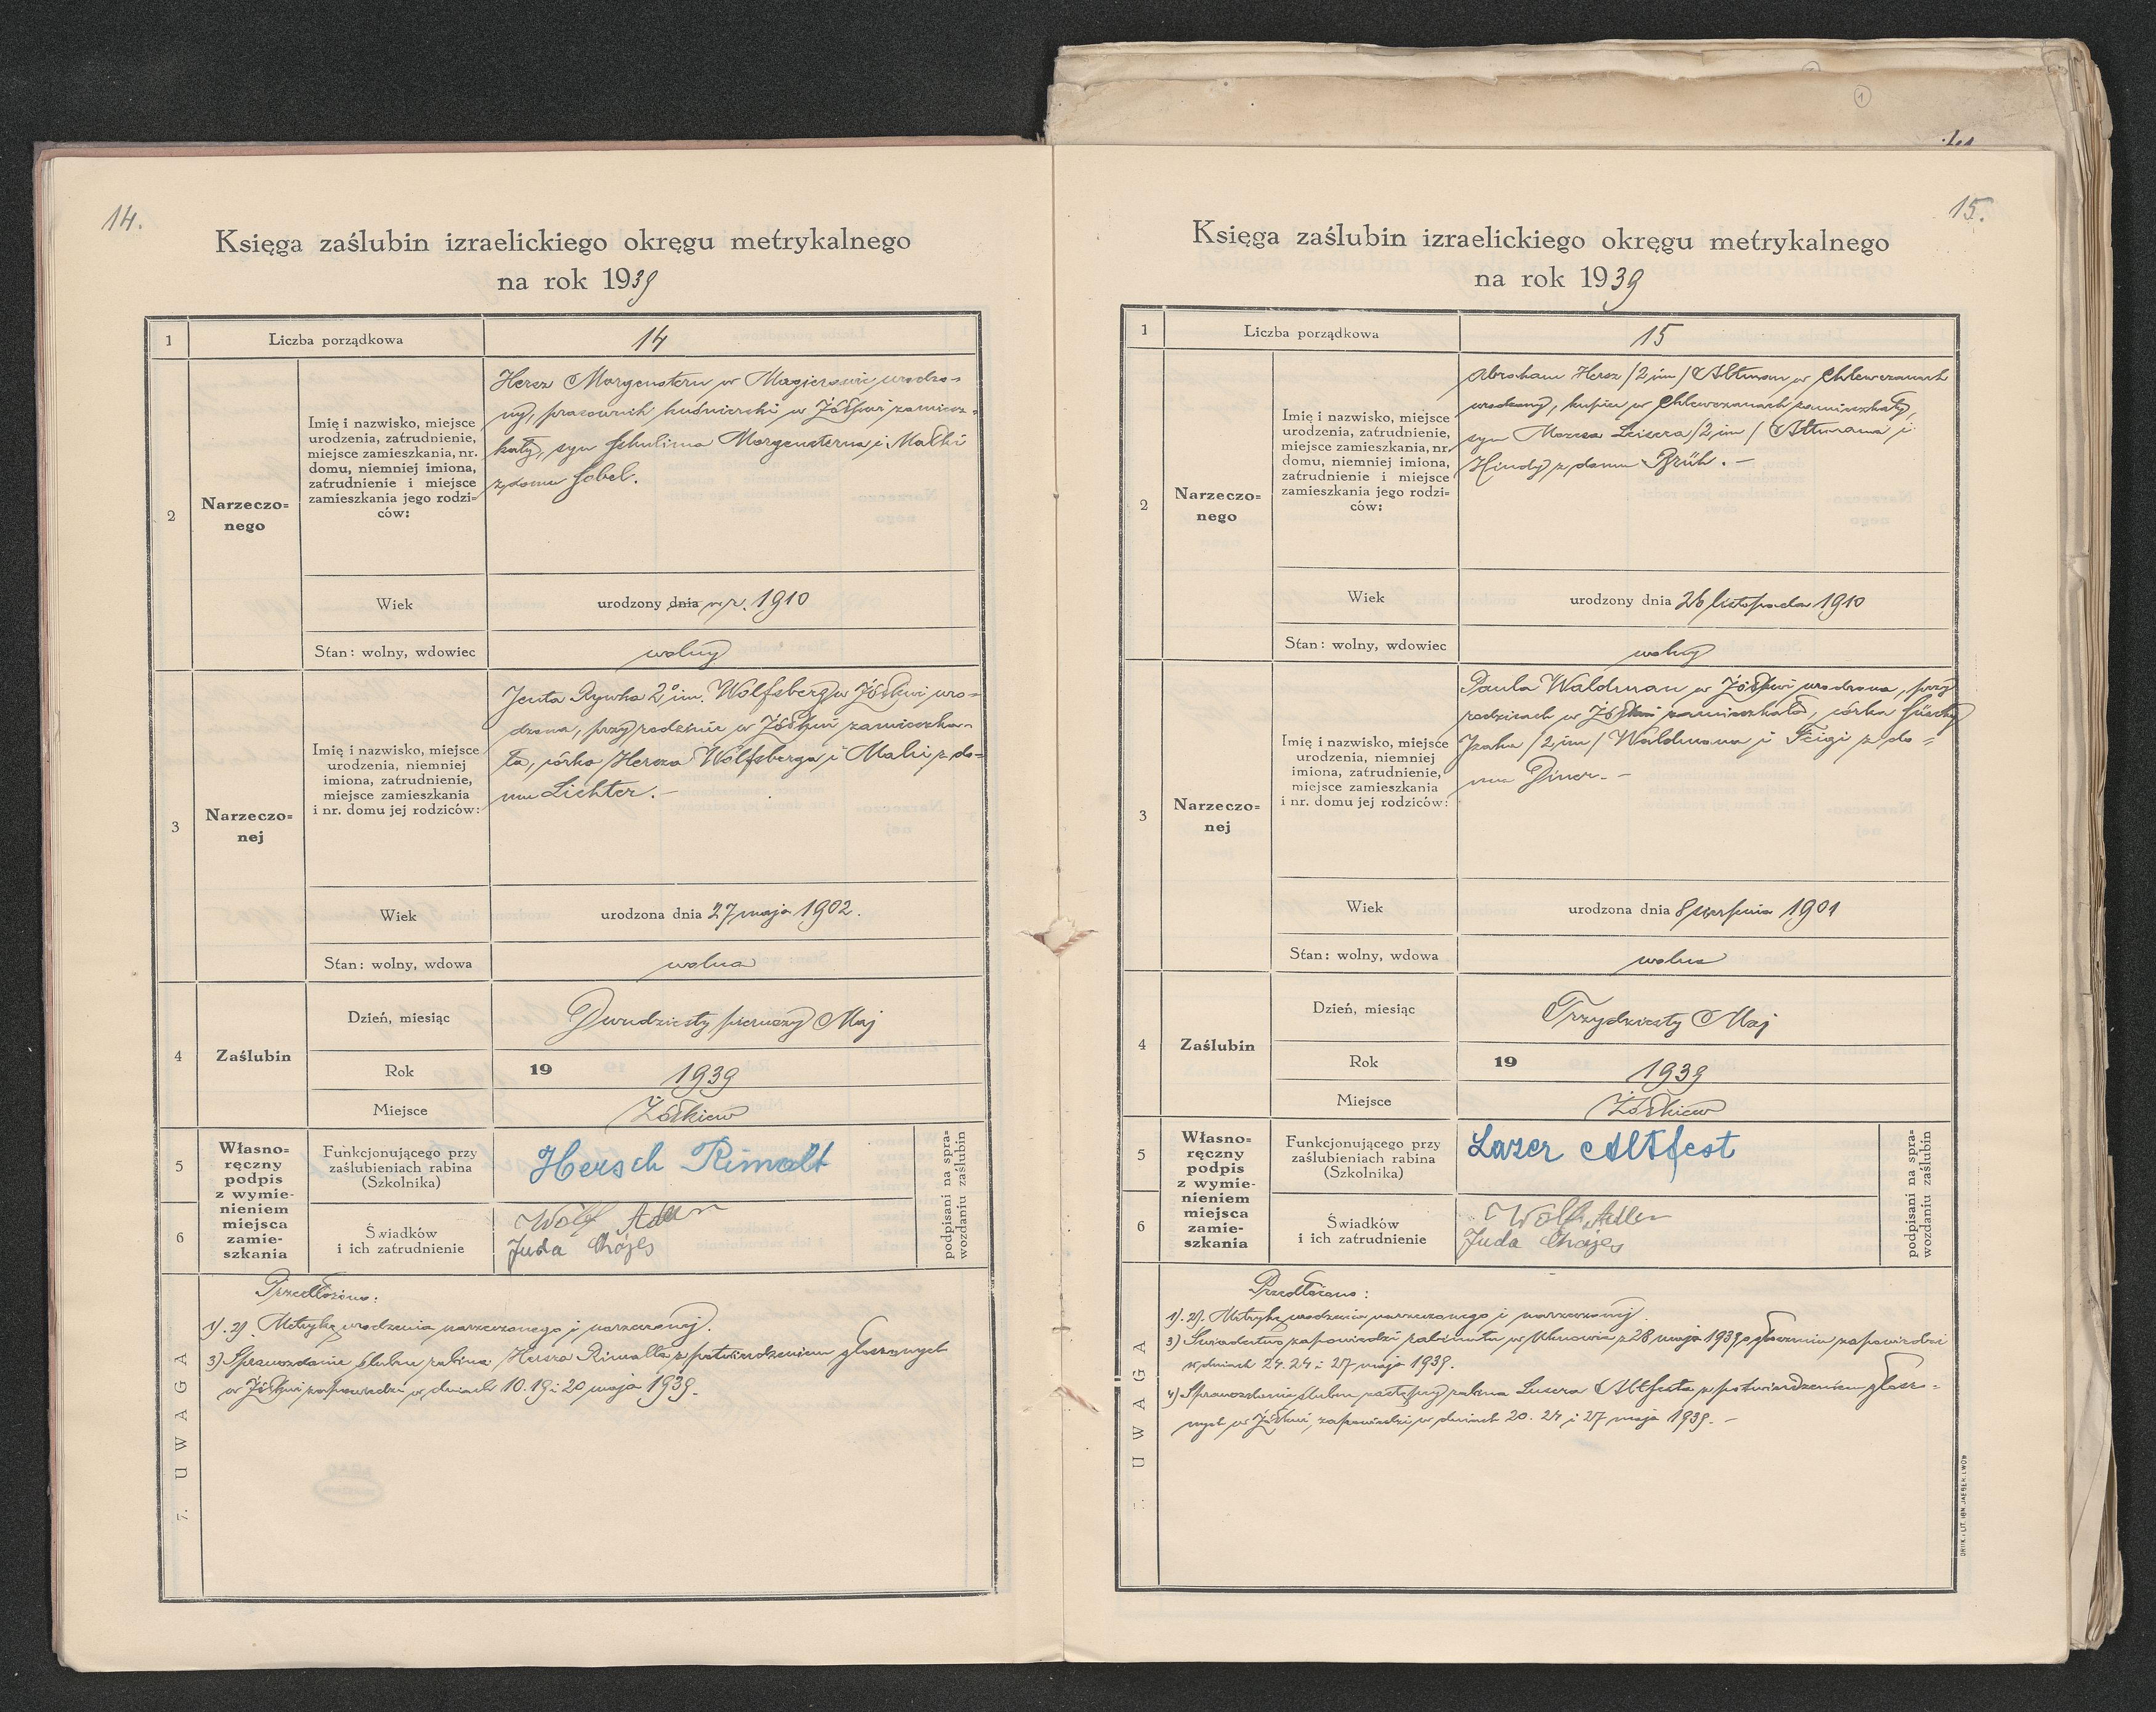 14.
Księga zaślubin izraelickiego okręgu metrykalnego
na rok 1939
1
Liczba porządkowa
14
2
Narzeczo=
nego
Imię i nazwisko, miejsce
urodzenia, zatrudnienie,
miejsce zamieszkania, nr.
domu, niemniej imiona,
zatrudnienie i miejsce
zamieszkania jego rodzi=
ców:
Hersz Morgenstern w Magierowie urodzo-
ny, pracownik kuśnierski w Żółkwi zamiesz-
kały, syn Schulima Morgensterna i Małki
z domu Sobel.
Wiek
urodzony dnia w r. 1910
Stan: wolny, wdowiec
wolny
3
Narzeczo=
nej
Imię i nazwisko, miejsce
urodzenia, niemniej
imiona, zatrudnienie,
miejsce zamieszkania
i nr. domu jej rodziców:
Jenta Rywka 2o im. Wolfsberg w Żółkwi uro-
dzona, przy rodzinie w Żółkwi zamieszka-
ła, córka Hersza Wolfsberga i Malci z do-
mu Lichter.-
Wiek
urodzona dnia 27 maja 1902.
Stan: wolny, wdowa
wolna
4
Zaślubin
Dzień, miesiąc
Dwudziesty pierwszy Maj
Rok
19
1939
Miejsce
Żółkiew
5
6
Własno=
ręczny
podpis
z wymie-
nieniem
miejsca
zamie-
szkania
Funkcjonującego przy
zaślubieniach rabina
(Szkolnika)
Hersch Rimalt
Świadków
i ich zatrudnienie
Wolf Adler
Juda Chajes
podpisani na spra-
wozdaniu zaślubin
7. UWAGA
Przedłożono:
1). 2). Metrykę urodzenia narzeczonego i narzeczonej.
3) Sprawozdanie ślubu rabina Hersza Rimalta z potwierdzeniem głoszonych
w Żółkwi zapowiedzi w dniach 10. 19 i 20 maja 1939.
15.
Księga zaślubin izraelickiego okręgu metrykalnego
na rok 1939
1
Liczba porządkowa
15
2
Narzeczo=
nego
Imię i nazwisko, miejsce
urodzenia, zatrudnienie,
miejsce zamieszkania, nr.
domu, niemniej imiona,
zatrudnienie i miejsce
zamieszkania jego rodzi=
ców:
Abraham Hersz /2 im/ Altman w Chlewczanach
urodzony, kupiec w Chlewczanach zamieszkały,
syn Mozesa Leisera /2 im/ Altmana i
Hindy z domu Brüh. -
Wiek
urodzony dnia 26 listopada 1910
Stan: wolny, wdowiec
wolny
3
Narzeczo=
nej
Imię i nazwisko, miejsce
urodzenia, niemniej
imiona, zatrudnienie,
miejsce zamieszkania
i nr. domu jej rodziców:
Paula Waldman w Żółkwi urodzona, przy
rodzicach w Żółkwi zamieszkała, córka
Izaka /2 im/ Waldmana i Feigi z do=
mu Diner. -
Wiek
urodzona dnia 8 sierpnia 1901
Stan: wolny, wdowa
wolna
4
Zaślubin
Dzień, miesiąc
Trzydziesty Maj
Rok
19
1939
Miejsce
Żółkiew
5
6
Własno=
ręczny
podpis
z wymie-
nieniem
miejsca
zamie-
szkania
Funkcjonującego przy
zaślubieniach rabina
(Szkolnika)
Lazer Altfest
Świadków
i ich zatrudnienie
Wolf Adler
Juda Chajes
podpisani na spra-
wozdaniu zaślubin
7. UWAGA
Przedłożono:
1). 2). Metrykę urodzenia narzeczonego i narzeczonej.
3) Świadectwo zapowiedzi rabinatu w Uhnowie z 28 maja 1939 o głoszeniu zapowiedzi
w dniach 24. 24 i 27 maja 1939.
4) Sprawozdanie ślubu zastępcy rabina Lasera Altfesta z potwierdzeniem głoszo-
nych w Żółkwi, zapowiedzi w dniach 20. 24 i 27 maja 1939. -
DRUK. I LIT. IGN. JAEGER, LWÓW
1